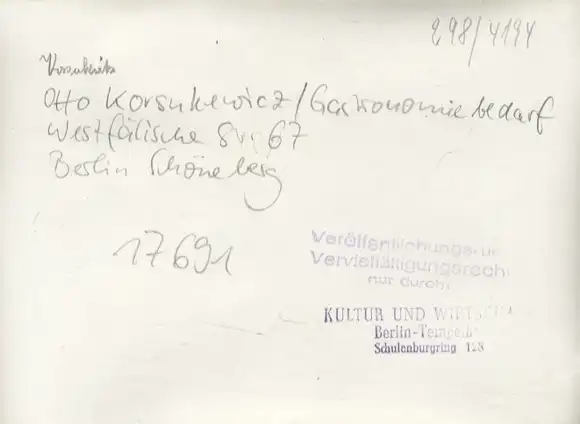 298/4194
Otto Korsukewicz/Gastronomiebedarf
Westfälische Str. 67
Berlin Schöneberg
17691
Veröffentlichungs- u
Vervielfältigungsrech
nur durch:
KULTUR UND WIRTSCHA
Berlin-Tempelh
Schulenburgring 128